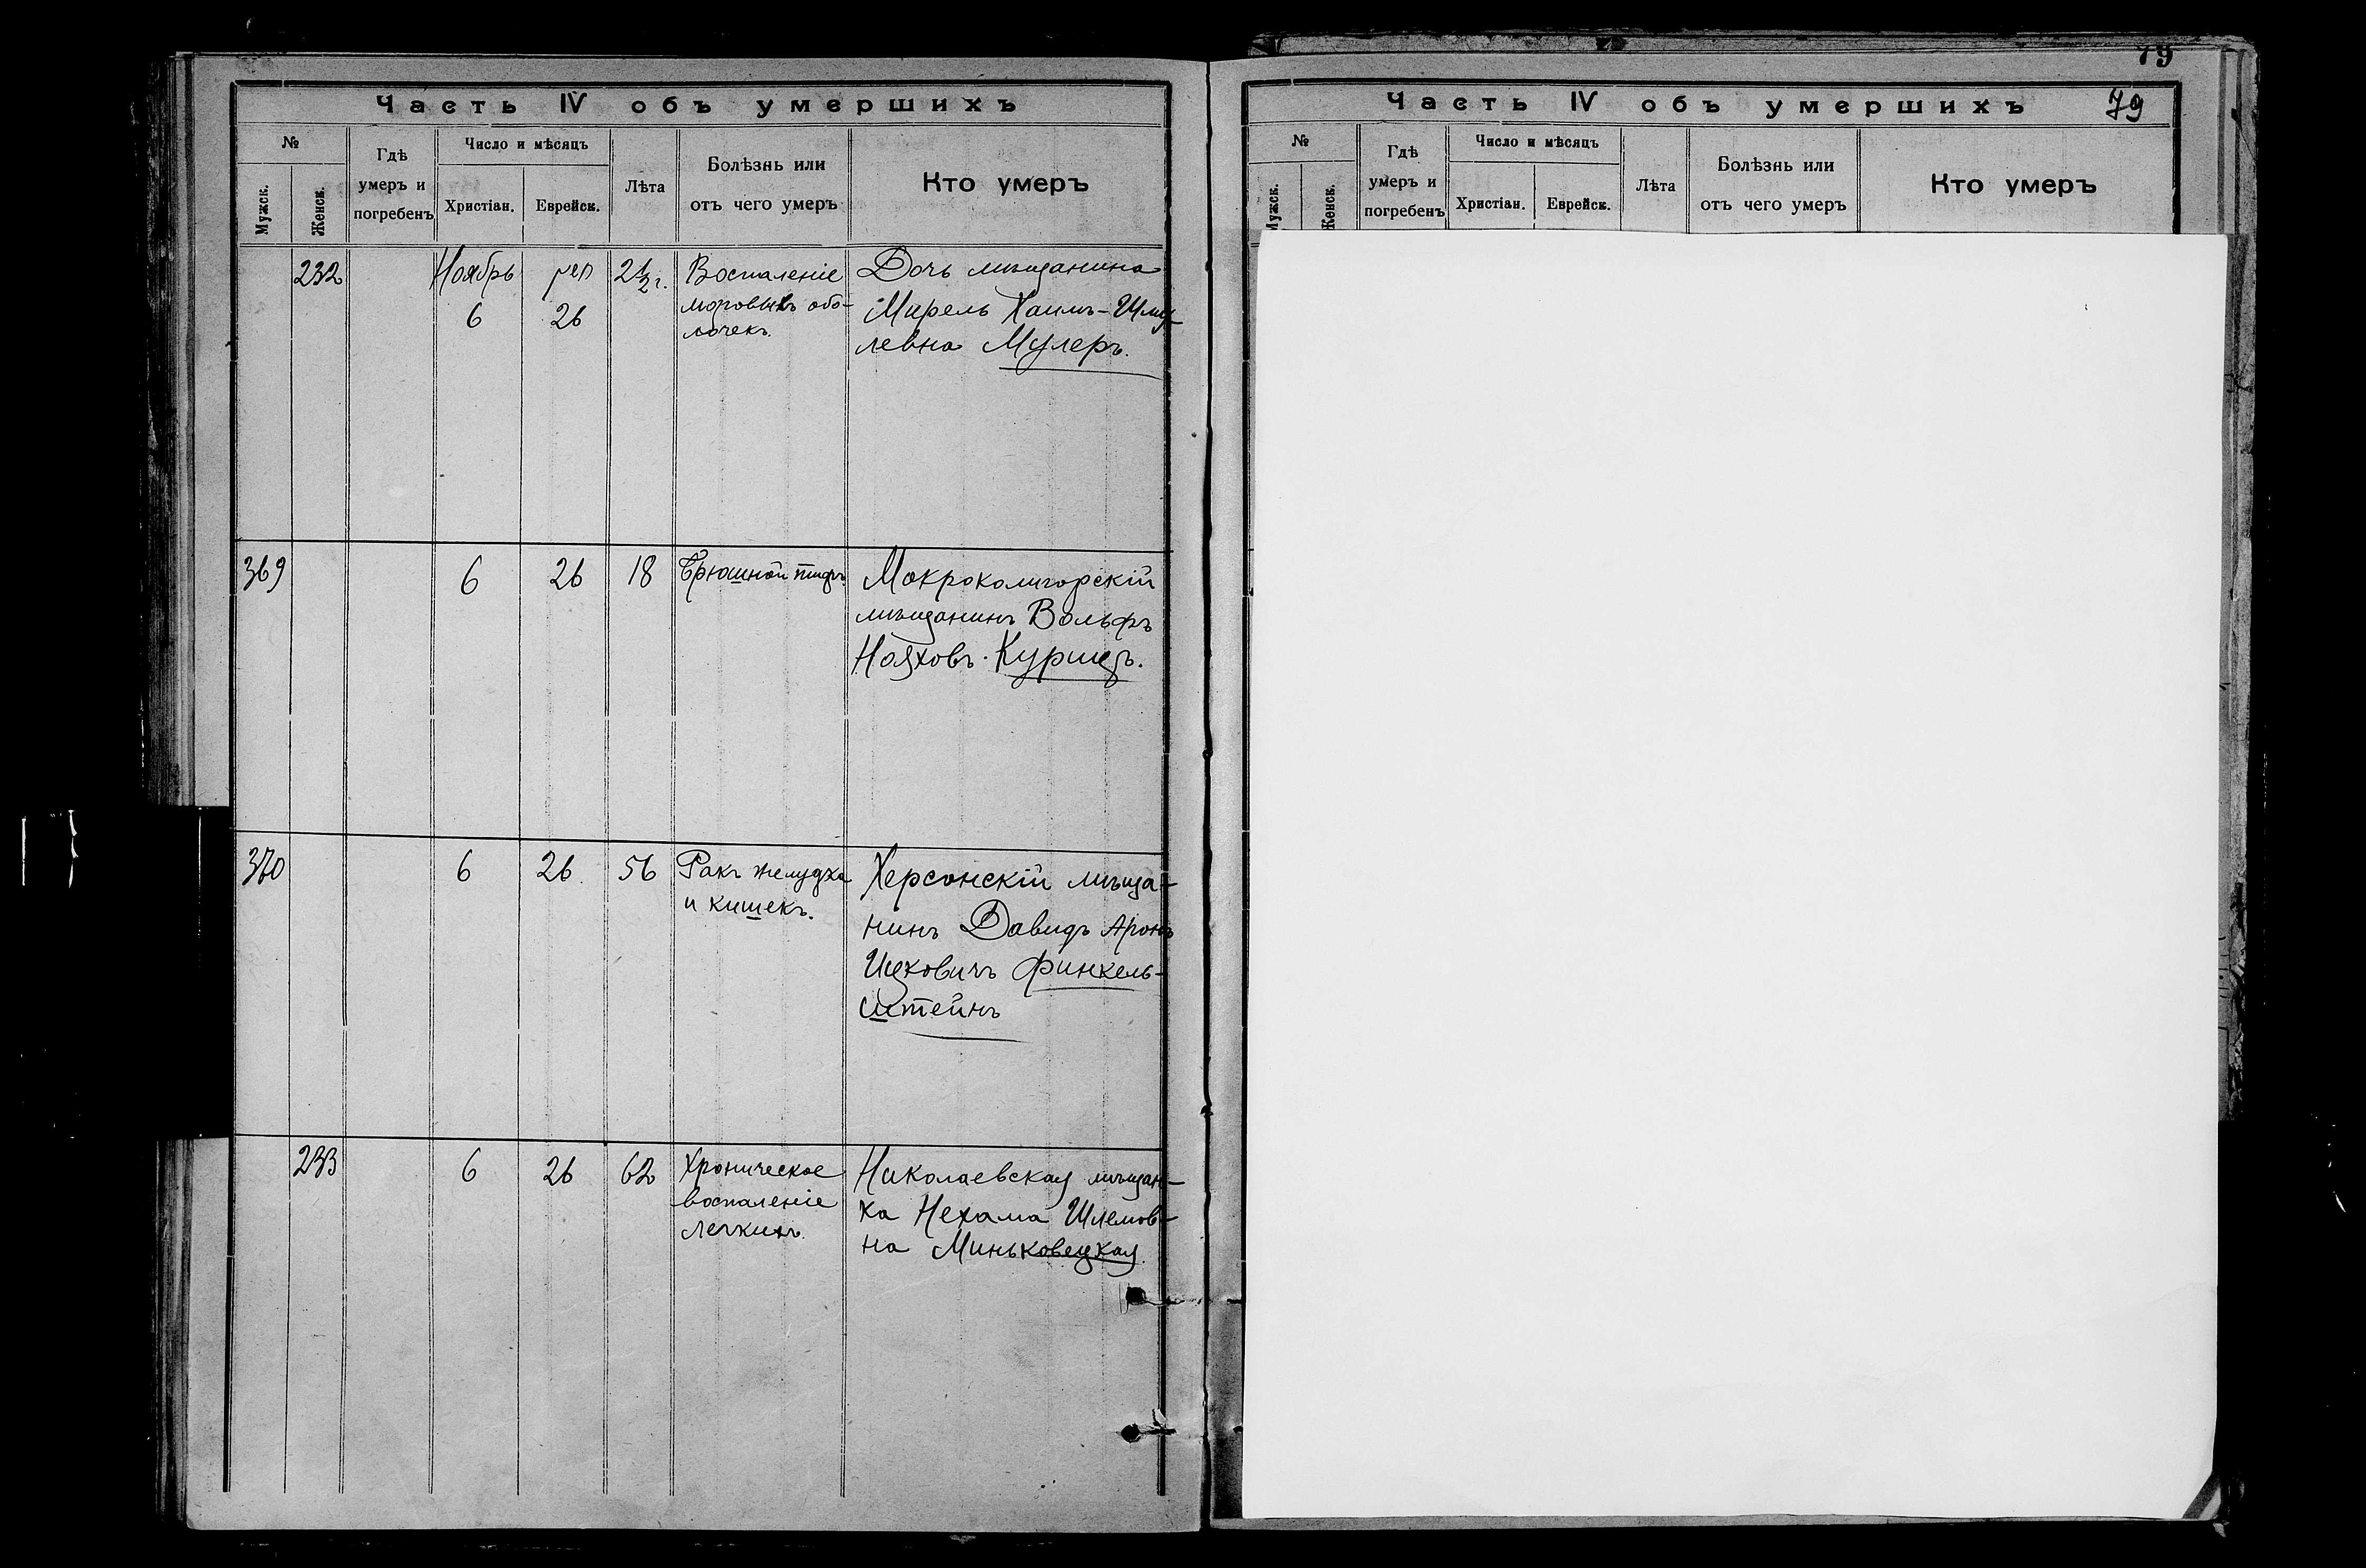 Часть IV объ умершихъ
№
Мужск.
Женск.
Гдѣ
умеръ и
погребенъ
Число и мѣсяцъ
Христіан.
Еврейск.
Лѣта
Болѣзнь или
отъ чего умеръ
Кто умеръ
232
Ноябрь
6
26
2½ г.
Воспаленіе
мозговыхъ обо-
лочекъ.
Дочь мѣщанина
Мирель Хаимъ-Шму-
левна Мулеръ.
369
6
26
18
Брюшной тифъ.
Мокрокалигорскій
мѣщанинъ Вольфъ
Нояховъ
370
6
26
56
Ракъ желудка
и кишекъ.
Херсонскій мѣща-
нинъ Давидъ Аронъ
Ицковичъ Финкель-
штейнъ
233
6
26
62
Хроническое
воспаленіе
легкихъ.
Николаевская мѣщан-
ка Нехама Шлемов-
на Миньковецкая.
79
Часть IV объ умершихъ
79
№
Мужск.
Женск.
Гдѣ
умеръ и
погребенъ
Число и мѣсяцъ
Христіан.
Еврейск.
Лѣта
Болѣзнь или
отъ чего умеръ
Кто умеръ